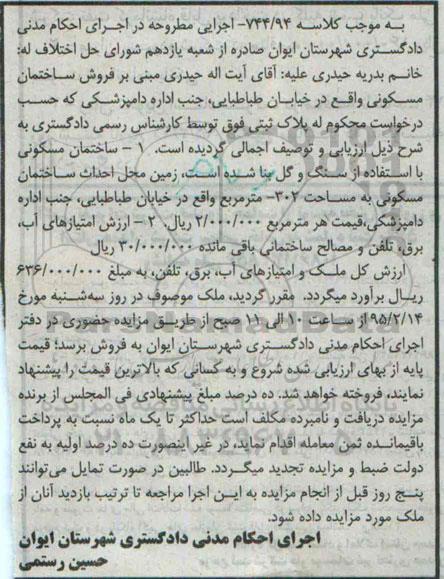 به موجب کلاسه ۷۴۴/۹۴- اجرایی مطروحه در اجرای احکام مدنی
دادگستری شهرستان ایوان صادره از شعبه یازدهم شورای حل اختلاف له:
خانم بدریه حیدری علیه: آقای آیت اله حیدری مبنی بر فروش ساختمان
مسکونی واقع در خیابان طباطبایی، جنب اداره دامپزشکی که حسب
درخواست محکوم له پلاک ثبتی فوق توسط کارشناس رسمی دادگستری به
شرح ذیل ارزیابی و توصیف اجمالی گردیده است. ۱ - ساختمان مسکونی
با استفاده از سنگ و گل بنا شده است، زمین محل احداث ساختمان
مسکونی به مساحت ۳۰۲- مترمربع واقع در خیابان طباطبایی، جنب اداره
دامپزشکی،قیمت هر مترمربع ۲/۰۰۰/۰۰۰ ریال. ۲ - ارزش امتیازهای آب،
برق، تلفن و مصالح ساختمانی باقی مانده ۳۰/۰۰۰/۰۰۰ ریال
ارزش کل ملک و امتیازهای آب، برق، تلفن، به مبلغ ۶۳۶/۰۰۰/۰۰۰
ریال برآورد میگردد. مقرر گردید، ملک موصوف در روز سه‌شنبه مورخ
۹۵/۲/۱۴از ساعت ۱۰ الی ۱۱ صبح از طریق مزایده حضوری در دفتر
اجرای احکام مدنی دادگستری شهرستان ایوان به فروش برسد؛ قیمت
پایه از بهای ارزیابی شده شروع و به کسانی که بالاترین قیمت را پیشنهاد
نمایند، فروخته خواهد شد. ده درصد مبلغ پیشنهادی فی المجلس از برنده
مزایده دریافت و نامبرده مکلف است حداکثر تا یک ماه نسبت به پرداخت
باقیمانده ثمن معامله اقدام نماید، در غیر اینصورت ده درصد اولیه به نفع
دولت ضبط و مزایده تجدید میگردد. طالبین در صورت تمایل می‌توانند
پنج روز قبل از انجام مزایده به این اجرا مراجعه تا ترتیب بازدید آنان از
ملک مورد مزایده داده شود.
اجرای احکام مدنی دادگستری شهرستان ایوان
حسین رستمی